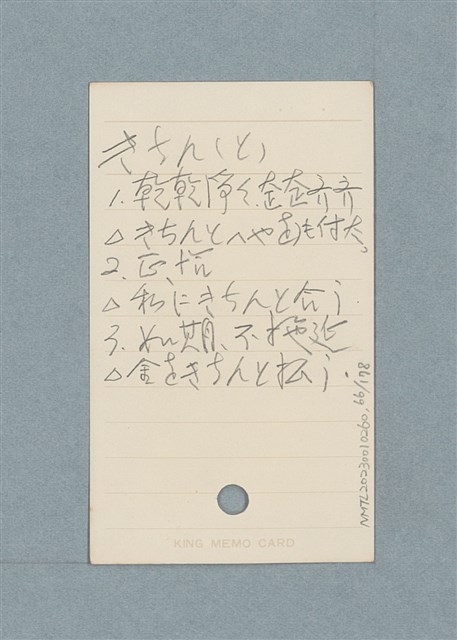 きちん（と）
1. 乾乾淨々、整整齐齐
△ きちんとへやをも付た。
2. 正、恰
△ 私にきちんと合う.
3. 如期、不拖延
△ 金をきちんと払う.
NMTL20230010260, 66/178
KING MEMO CARD